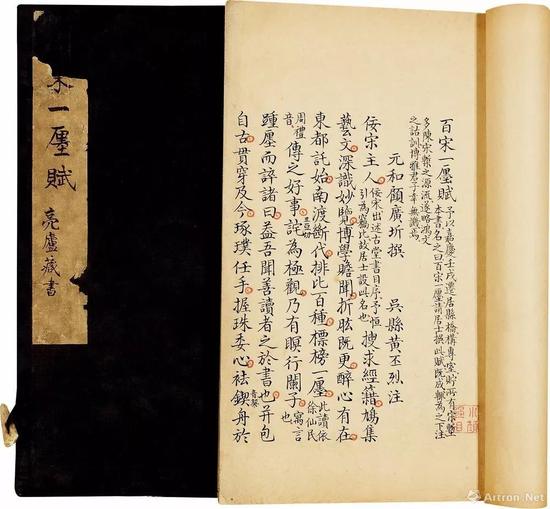 百宋一廛賦 予以嘉慶壬戌遷居縣橋構專室貯所有宋槧
本書名之曰百宋一廛請居士撰此賦既成輒為之下注
多陳宋槧之源流遂略鴻文
之詁訓博雅君子幸無譏焉
元和顧廣圻撰 吳縣黃丕烈注
佞宋主人 佞宋出述古堂書目序予恒
引為竊比故居士設此名也 搜求經籍鳩集
藝文深識妙覽博學瞻聞折肱既更醉心有在
東都託始南渡斷代排比百種標榜一廛 此讀依
徐仙民
周禮
音 傳之好事詫為極觀乃有瞑行闡子 寓言
也
踵廛而誶諸曰益吾聞善讀者之於書也并包
自古貫穿及今琢璞任手握珠委心袪鍥舟於
宋一廛賦
亮廬藏書
Artron.Net